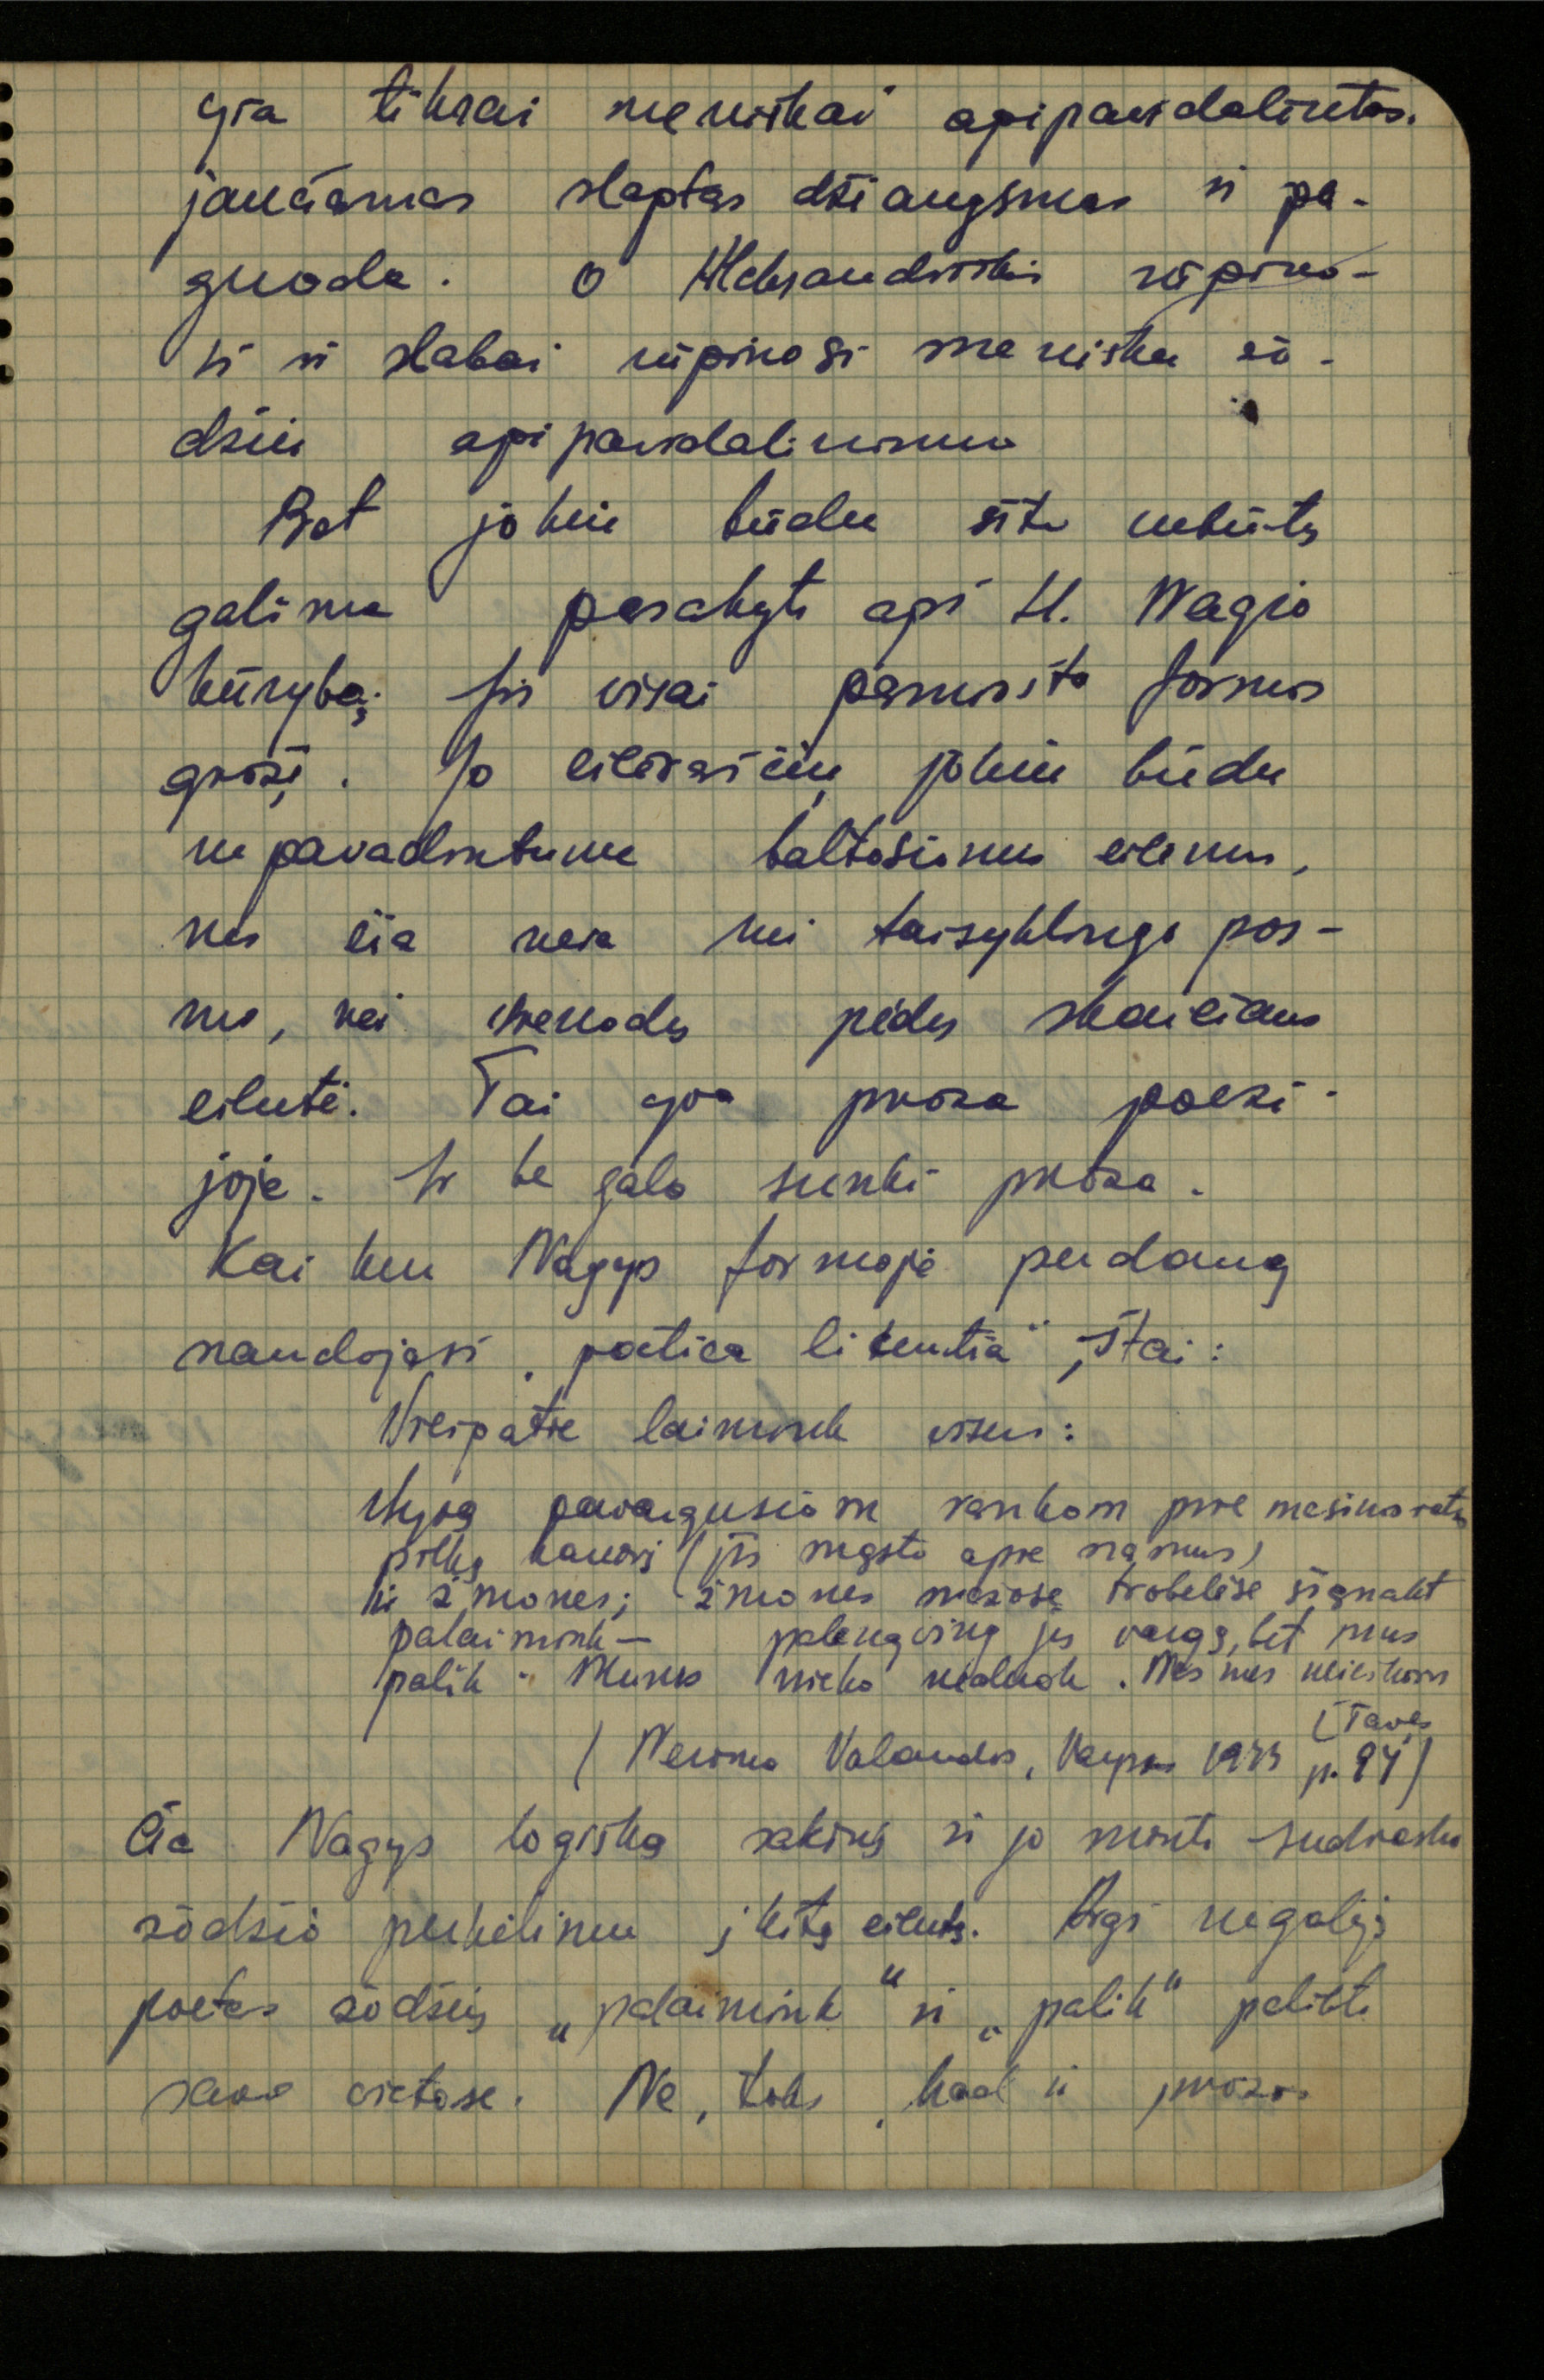 yra tikrai meniškai apipavidalintas.
jaučiamas slaptas džiaugsmas ir pa-
guoda. O Aleksandriškis rūpino-
si ir labai rūpinosi menišku žo-
džiu apipavidalinimu
Bet jokiu būdu šito nebūtų
galima pasakyti apie H. Nagio
kūrybą. Jis visai pamiršta formos
grožį. Jo eilėraščių jokiu būdu
nepavadintume baltosiomis eilėmis,
nes čia nėra nei taisyklingo pos-
mo, nei vienodų pėdų skaičiaus
eilutė. Tai yra proza poezi-
joje. Ir be galo sunki proza.
Kai kur Nagys formoje perdaug
naudojasi „poetica licentia", štai:
Viešpatie laimink visus:
pavargusiom rankom prie mašinos rato
pilką kareivį (jis mąsto apie namus)
ir žmones; žmones mažose trobelėse šiąnakt
palaimink — palengvink jų vargą, bet mus
palik. Mums nieko neduok. Nes mes neieškom
[Tavęs
(Nerimo Valandos, Varpas 1943 p. 94)
Čia Nagys logišką sakinį ir jo mintį sudrasko
žodžio perkėlimu į kitą eilutę. Argi negalėjo
poetas žodžius „palaimink" ir „palik" palikti
savo vietose. Ne, toks, kad ir prozos